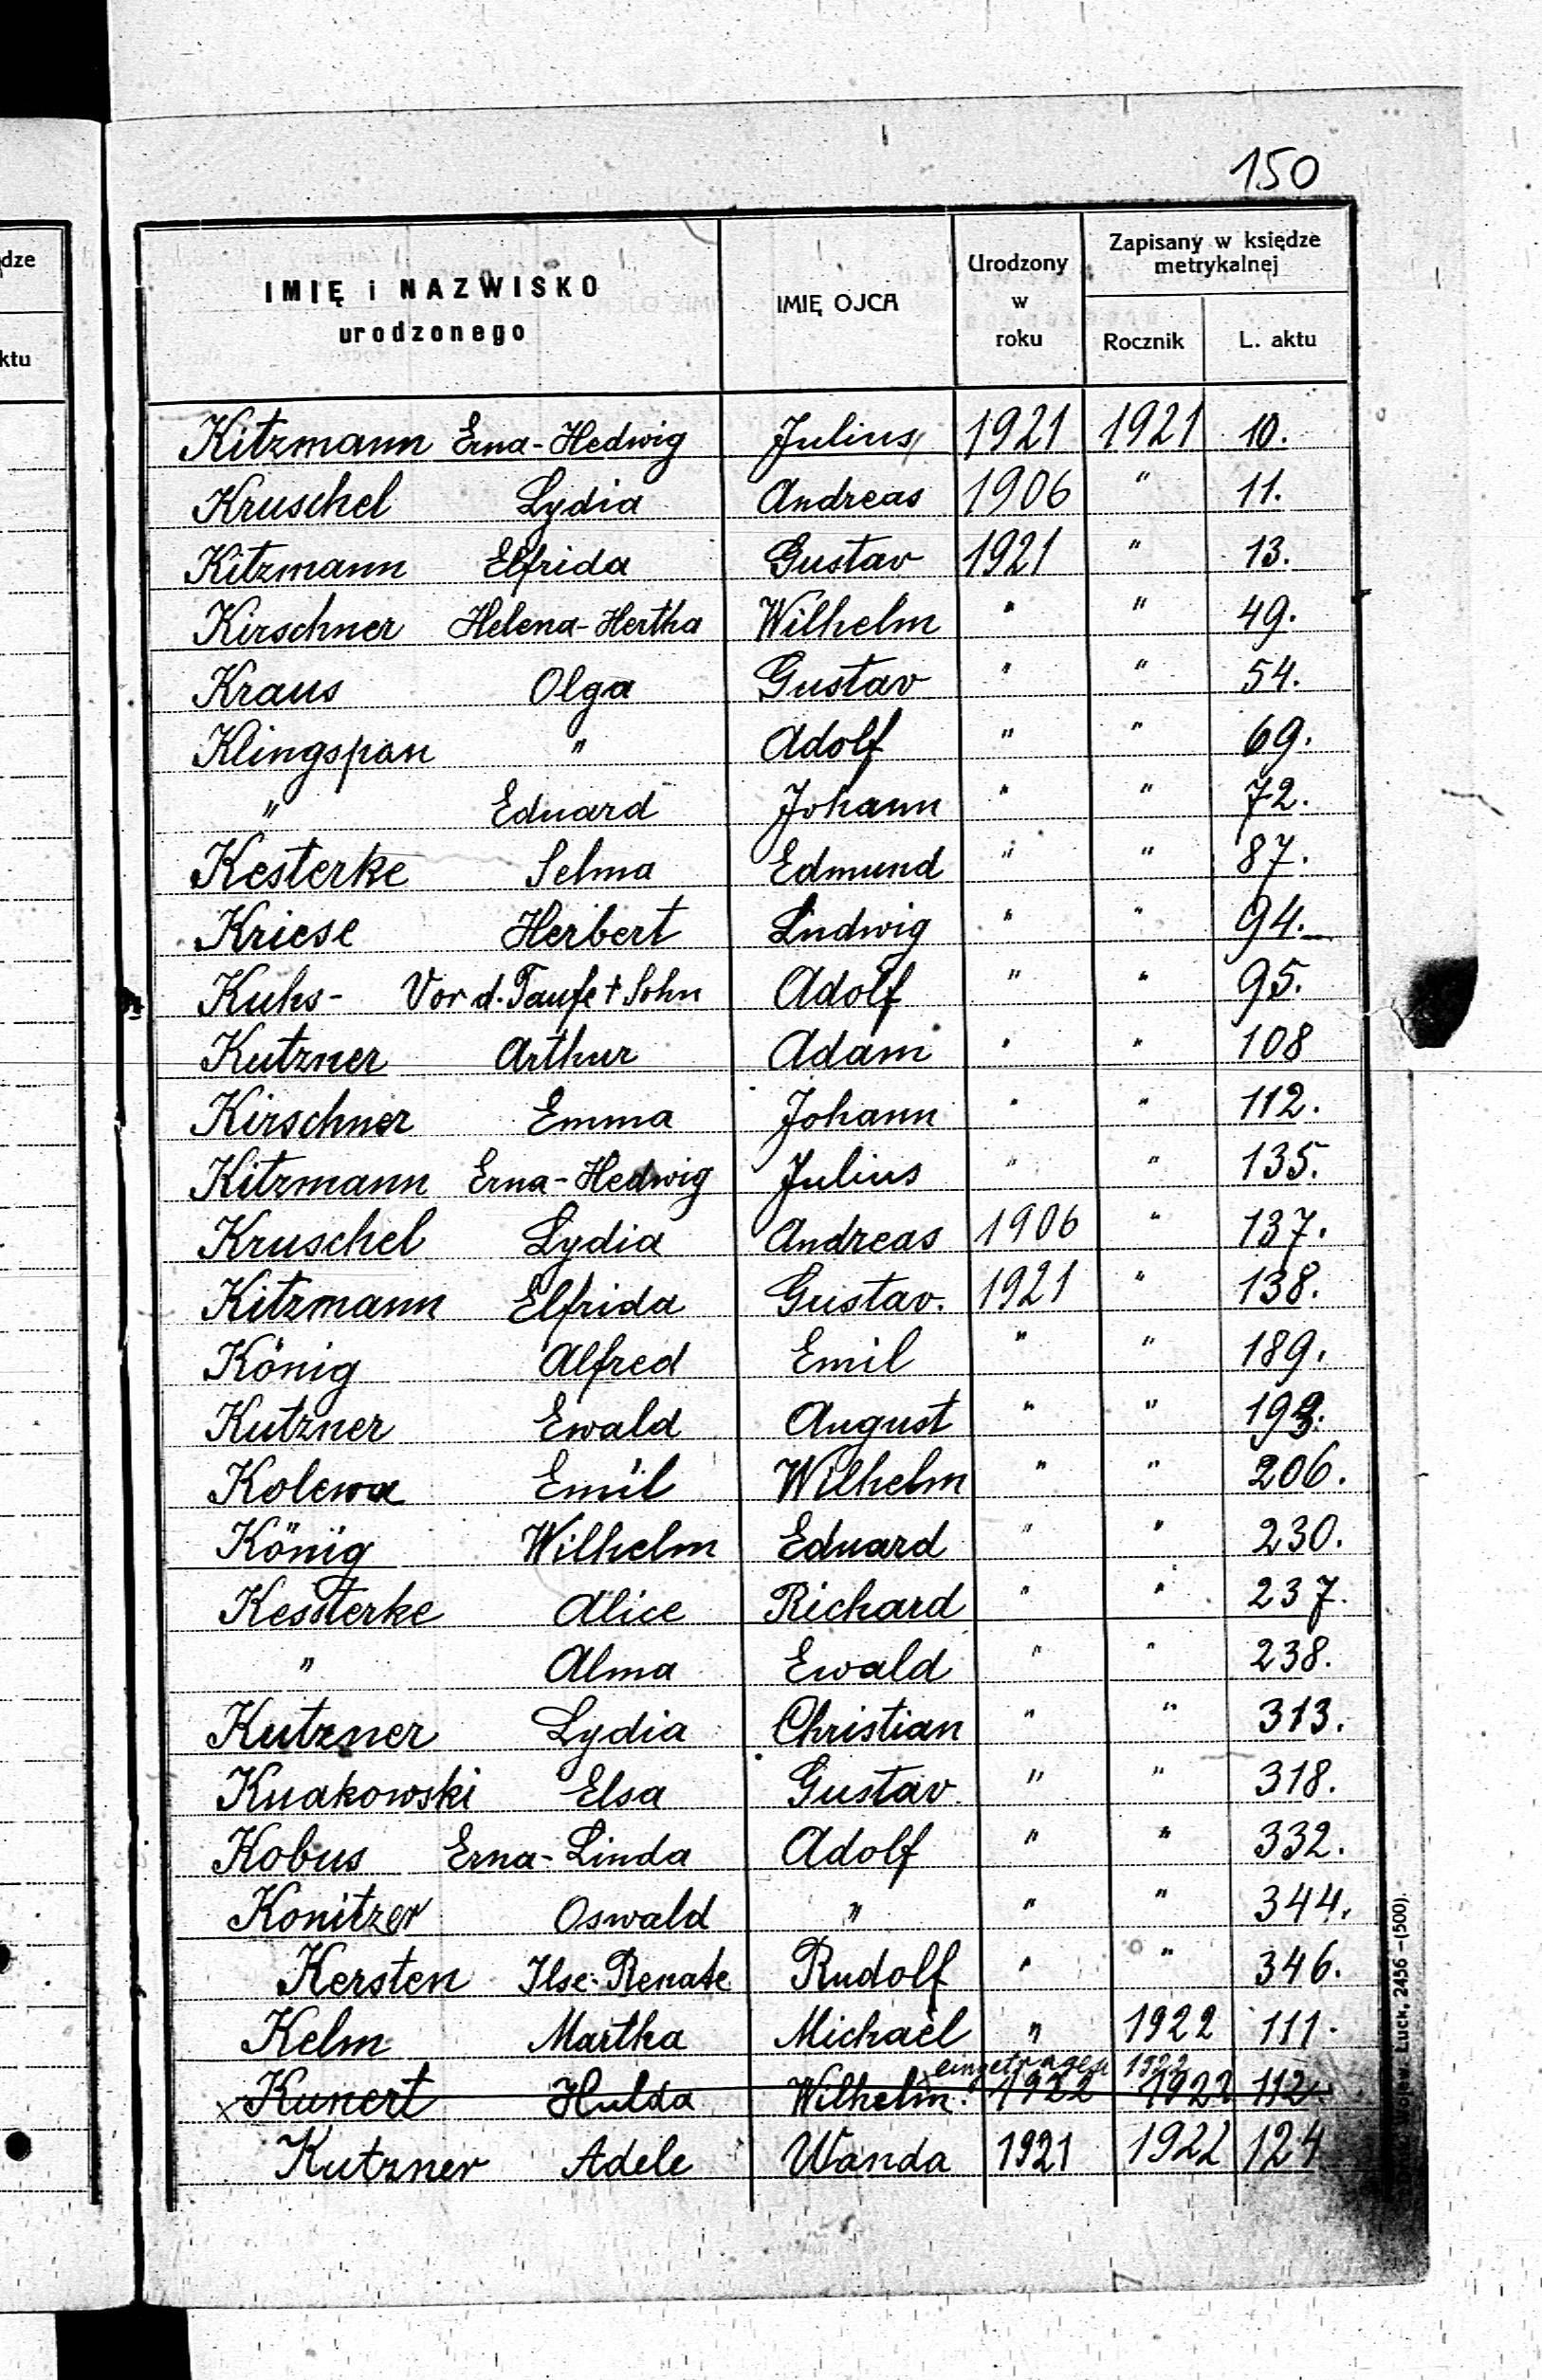 150
dze
ktu
IMIĘ i NAZWISKO
urodzonego
IMIĘ OJCA
Urodzony
w
roku
Zapisany w księdze
metrykalnej
Rocznik
L. aktu
Kitzmann Erna-Hedwig Julius 1921 1921 10.
Kruschel Lydia Andreas 1906 " 11.
Kitzmann Elfrida Gustav 1921 " 13.
Kirschner Helena-Hertha Wilhelm " " 49.
Kraus Olga Gustav " " 54.
Klingspon " Adolf " " 69.
" Eduard Johann " " 72.
Kesterke Selma Edmund " " 87.
Kriese Herbert Ludwig " " 94.
Kuhs- Vor d. Taufe † Sohn Adolf " " 95.
Kutzner Arthur Adam " " 108
Kirschner Emma Johann " " 112.
Kitzmann Erna-Hedwig Julius " " 135.
Kruschel Lydia Andreas 1906 " 137.
Kitzmann Elfrida Gustav. 1921 " 138.
König Alfred Emil " " 189.
Kutzner Ewald August " "
Kolewa Emil Wilhelm " " 206.
König Wilhelm Eduard " " 230.
Kessterke Alice Richard " " 237.
" Alma Ewald " " 238.
Kutzner Lydia Christian " " 313.
Knakowski Elsa Gustav " " 318.
Kobus Erna-Linda Adolf " " 332.
Konitzer Oswald " " " 344.
Kersten Ilse-Renate Rudolf " " 346.
Kelm Martha Michael " 1922 111.
eingetragen 1922
x Kunert Hulda Wilhelm. 1922 1922 112.
Kutzner Adele Wanda 1921 1922 124
Łuck, 2456 – (500).